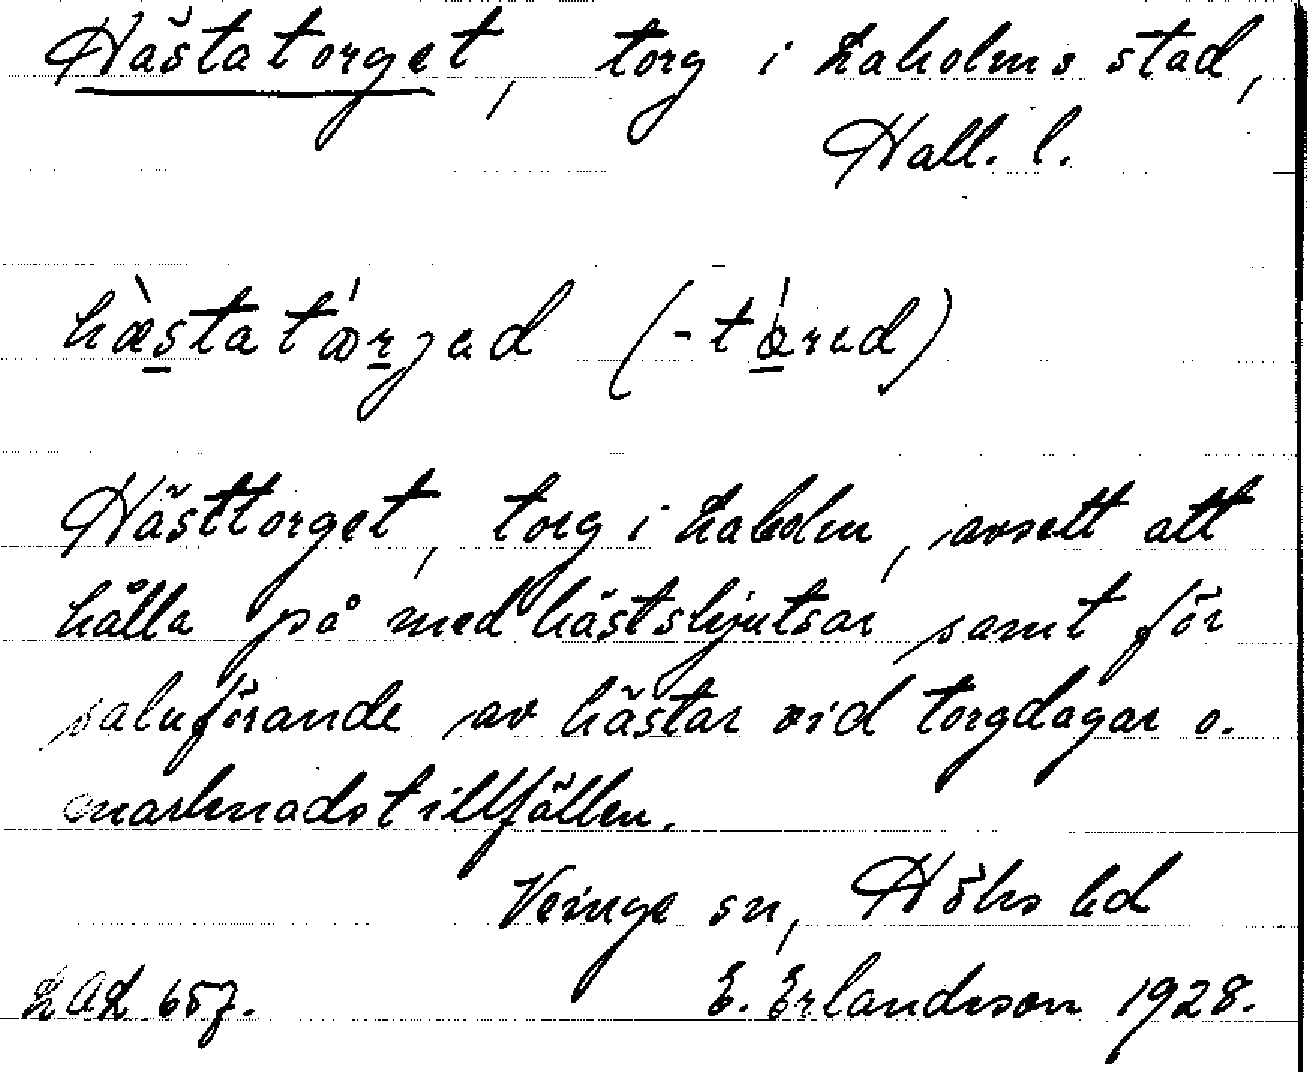 Hästatorget, torg i Laholms stad,
Hall. l.
hæ̀statɷ́rjed (-tɷ́red)
Hästtorget, torg i Laholm, avsett att
hålla på med hästskjutsar samt för
saluförande av hästar vid torgdagar o.
marknadstillfällen.
Veinge sn, Höks hd
LAL 657. E. Erlandsson 1928.